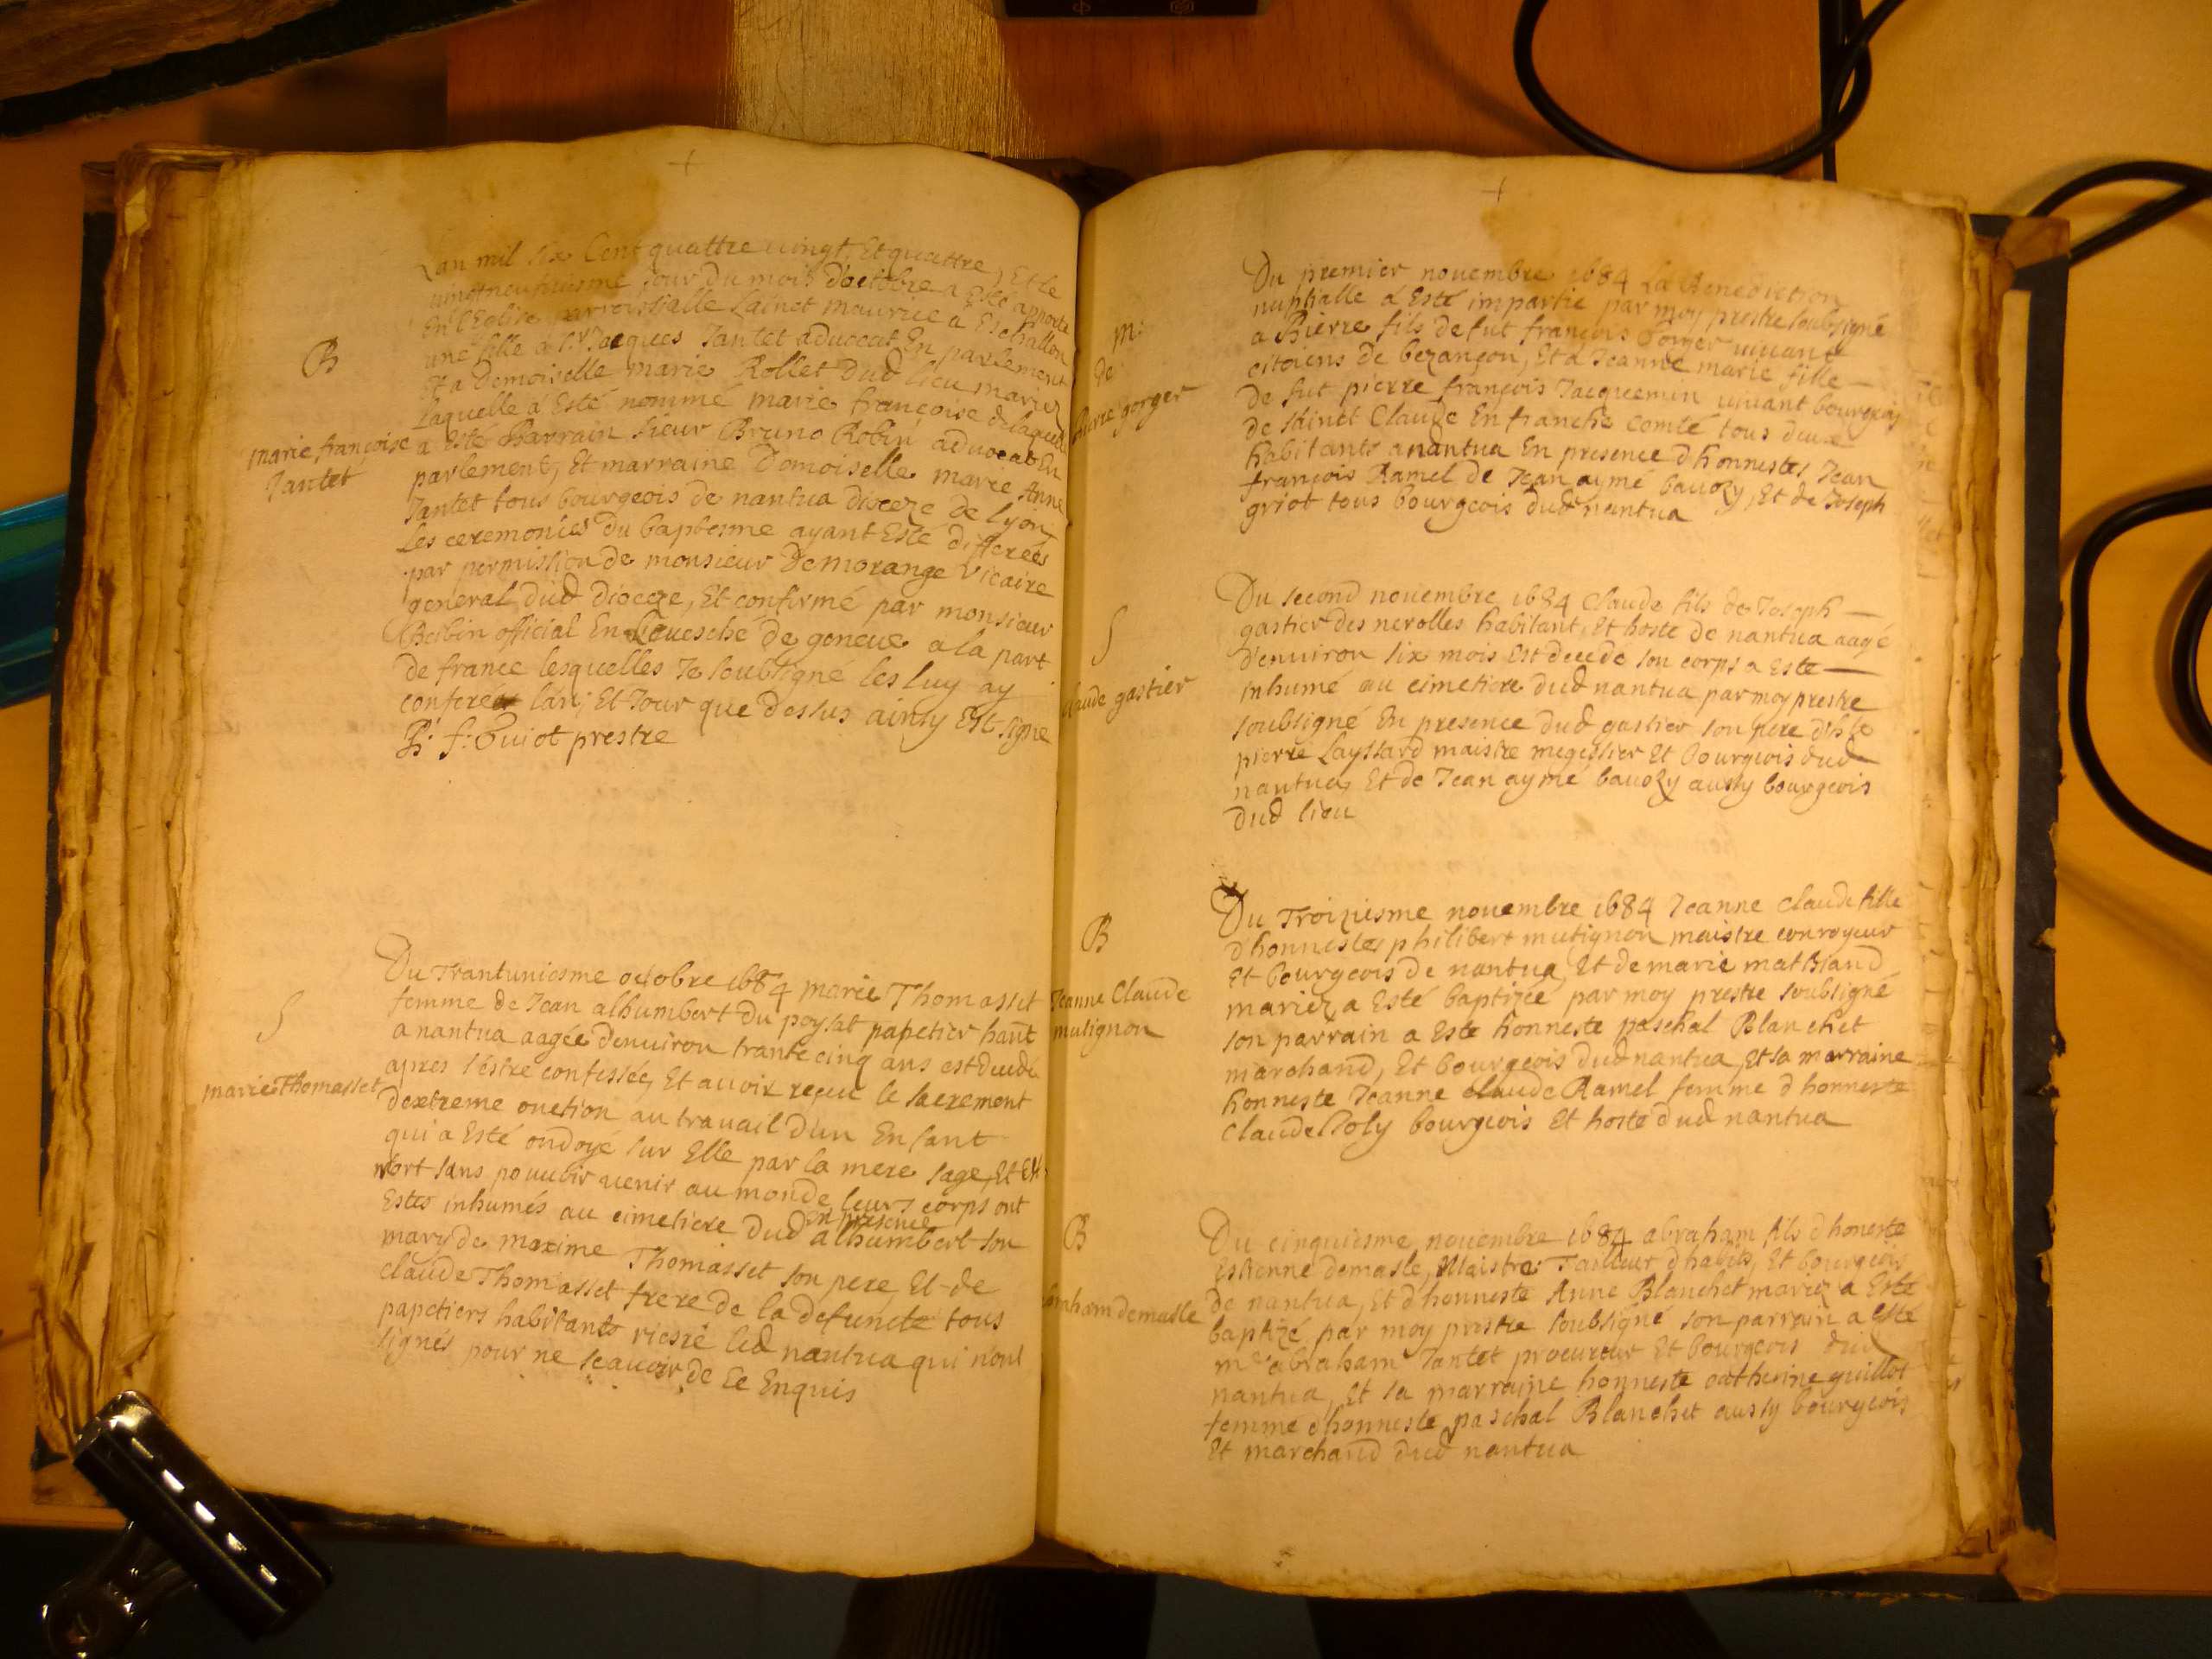 +
Lan mil six Cent quattre vingt, Et quattre, Et le
vingtneufuiesme Jour du mois d'octobre a Esté apporté
En l'Eglise parroissialle Sainct Maurice a Eschallon
une fille a Sr Jacques Jantet aduocat En parlement
Et a Demoiselle Marie Rollet Dud lieu mariez
laquelle a Esté nommé marie françoise de laquelle
a Esté Parrain Sieur Bruno Robin aduocat En
parlement, Et marraine Domoiselle marie Anne
Jantet tous bourgeois de nantua dioceze de lyon,
les ceremonies du baptesme ayant Esté differées
par permission de monsieur De morange Vicaire
general dud Dioceze, Et confirmé par monsieur
Babin official En l'Euesché de geneue a la part
de france lesquelles Je soubsigné les luy ay
conferez lan, Et Jour que dessus ainsy Est signé
f: Guiot prestre
B
marie françoise
Jantet
Du Trantuniesme octobre 1684 marie Thomasset
femme de Jean alhumbert du poysat papetier hant
a nantua aagée denuiron trante cinq ans est decedé
apres sestre confessée, Et auoir reçeu le sacrement
dextreme onction au trauail dun Enfant
qui a Esté ondoyé sur Elle par la mere sage, Et Est
mort sans pouuoir uenir au monde, leurs corps ont
Estes inhumés au cimetiere Dud En presence alhumbert son
mary de maxime Thomasset son pere, Et de
claude Thomasset frere de la defuncte tous
papetiers habitants riere led nantua qui nont
signés pour ne scauoir de Ce Enquis
S
marie Thomasset
+
Du premier nouembre 1684 La Benediction
nuptialle a Esté impartie par moy prestre soubsigné
a Pierre fils de fut françois Gorger uiuant
citoiens de bezançon, Et a Jeanne marie fille
de fut pierre françois Jacquemin uiuant bourgeois
de Sainct Claude En franche comté tous deux
habitants a nantua En presence d'honnestes Jean
françois Ramel de Jean aymé bauozy, Et de Joseph
griot tous bourgeois dud nantua
m:
de
Pierre gorger
Du second nouembre 1684 Claude fils de Joseph
gastier des nerolles habitant, Et hoste de nantua aagé
d'enuiron six mois est decedé son corps a este
inhumé au cimetiere dud nantua par moy prestre
soubsigné En presence dud gastier son pere d'hte
pierre Layssard maistre megissier Et bourgeois dud
nantua, Et de Jean aymé bauozy aussy bourgeois
dud lieu
S
claude gastier
Du Troiziesme nouembre 1684 Jeanne claude fille
d'honnestes philibert mutignon maistre conroyeur
Et bourgeois de nantua, Et de marie mathiand
mariez a Esté baptizée par moy prestre soubsigné
son parrain a Este honneste paschal Blanchet
marchand, Et bourgeois dud nantua, Et sa marraine
honneste Jeanne claude Ramel femme d honneste
Claude Joly bourgeois Et hoste dud nantua
B
Jeanne Claude
mutignon
Du cinquiesme nouembre 1684 abraham fils d honeste
Estienne demasle, Maistre Tailleur d'habits, Et bourgeois
de nantua, Et d'honneste Anne Blanchet mariez a Esté
baptizé par moy prestre soubsigné son parrain a Esté
me abraham Jantet procureur Et bourgeois dud
nantua, Et sa marraine honneste catherine guillot
femme d'honneste paschal Blanchet aussy bourgeois
Et marchand dud nantua
B
abraham demasle